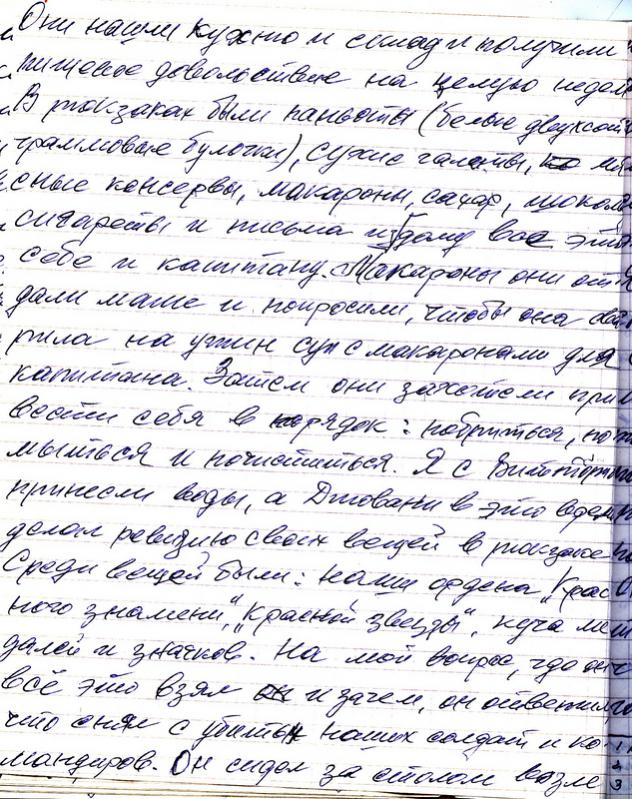 Они нашли кухню и склад и получили
пищевое довольствие на целую недел
В рюкзаках были паньоты (белые двухсот
граммовые булочки), сухие галеты, мя
сные консервы, макароны, сахар, шокол
сигареты и письма из дому все это
себе и капитану. Макароны они от
дали маме и попросили, чтобы она сва
рила на ужин суп с макаронами для
капитана. Затем они захотели при
вести себя в порядок: побриться, по
мыться и почиститься. Я с Витторио
принесли воды, а Джовани в это врем
делал ревизию своих вещей в рюкзаке
Среди вещей были: наши ордена „Крас
ного знамени", „Красной звезды", куча ме
далей и значков. На мой вопрос, где он
всё это взял и зачем, он ответил
что снял с убитых наших солдат и ко
мандиров. Он сидел за столом возле